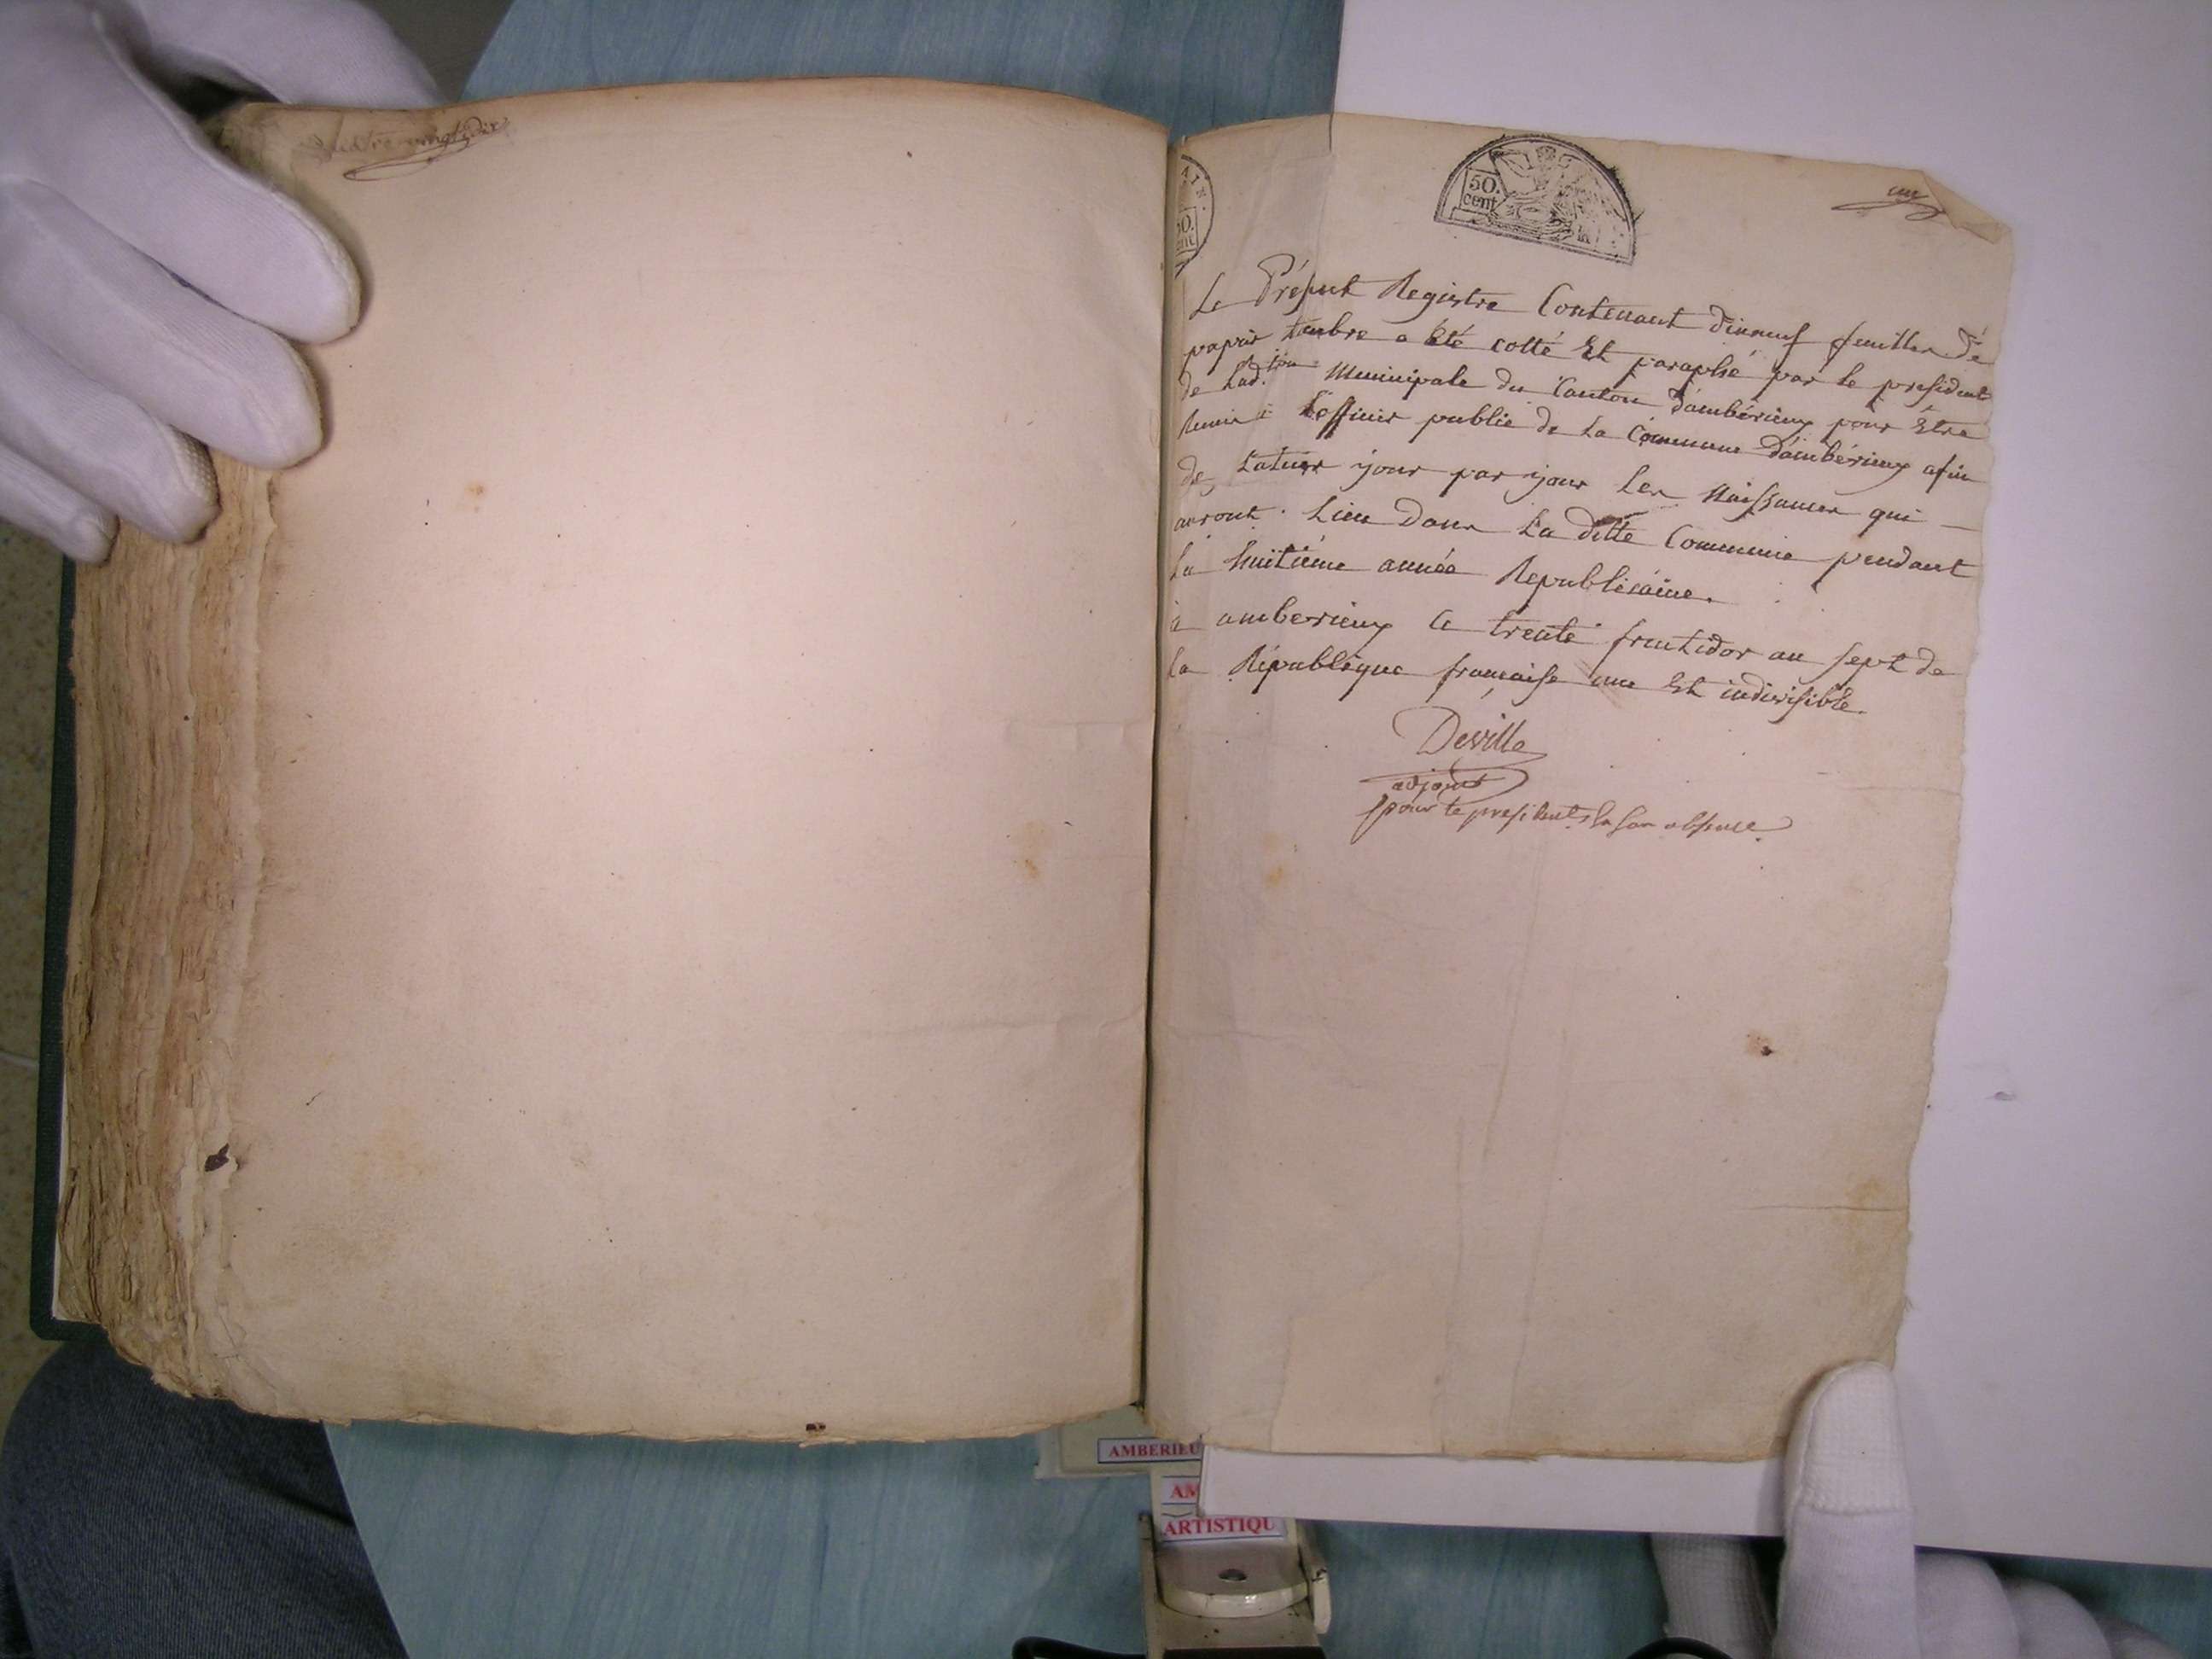 quatre-vingt dix
50.
cent
un
Le Présent Registre Contenant dixneuf feuilles de
papier timbre a Eté cotté Et paraphé par le president
de Lad.on Municipale du Canton d'ambérieux pour Etre
Remis a L'officier public de La Commune d'ambérieux afin
de, jour par jour Les Naissances qui —
auront Lieu Dans La ditte Commune pendant
La huitieme année Republicaine.
à amberieux Ce trente fructidor an sept de
la République francaise une Et indivisible.
Deville
adjoint
pour le president En son absence
AMBERIEU
AM
ARTISTIQU